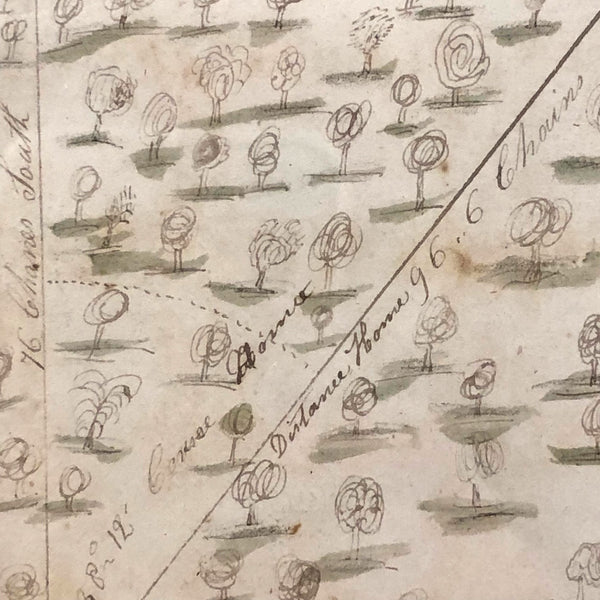 76 Chanes South
Corse Home
Distance Home 96"6 Chains
8° 12'